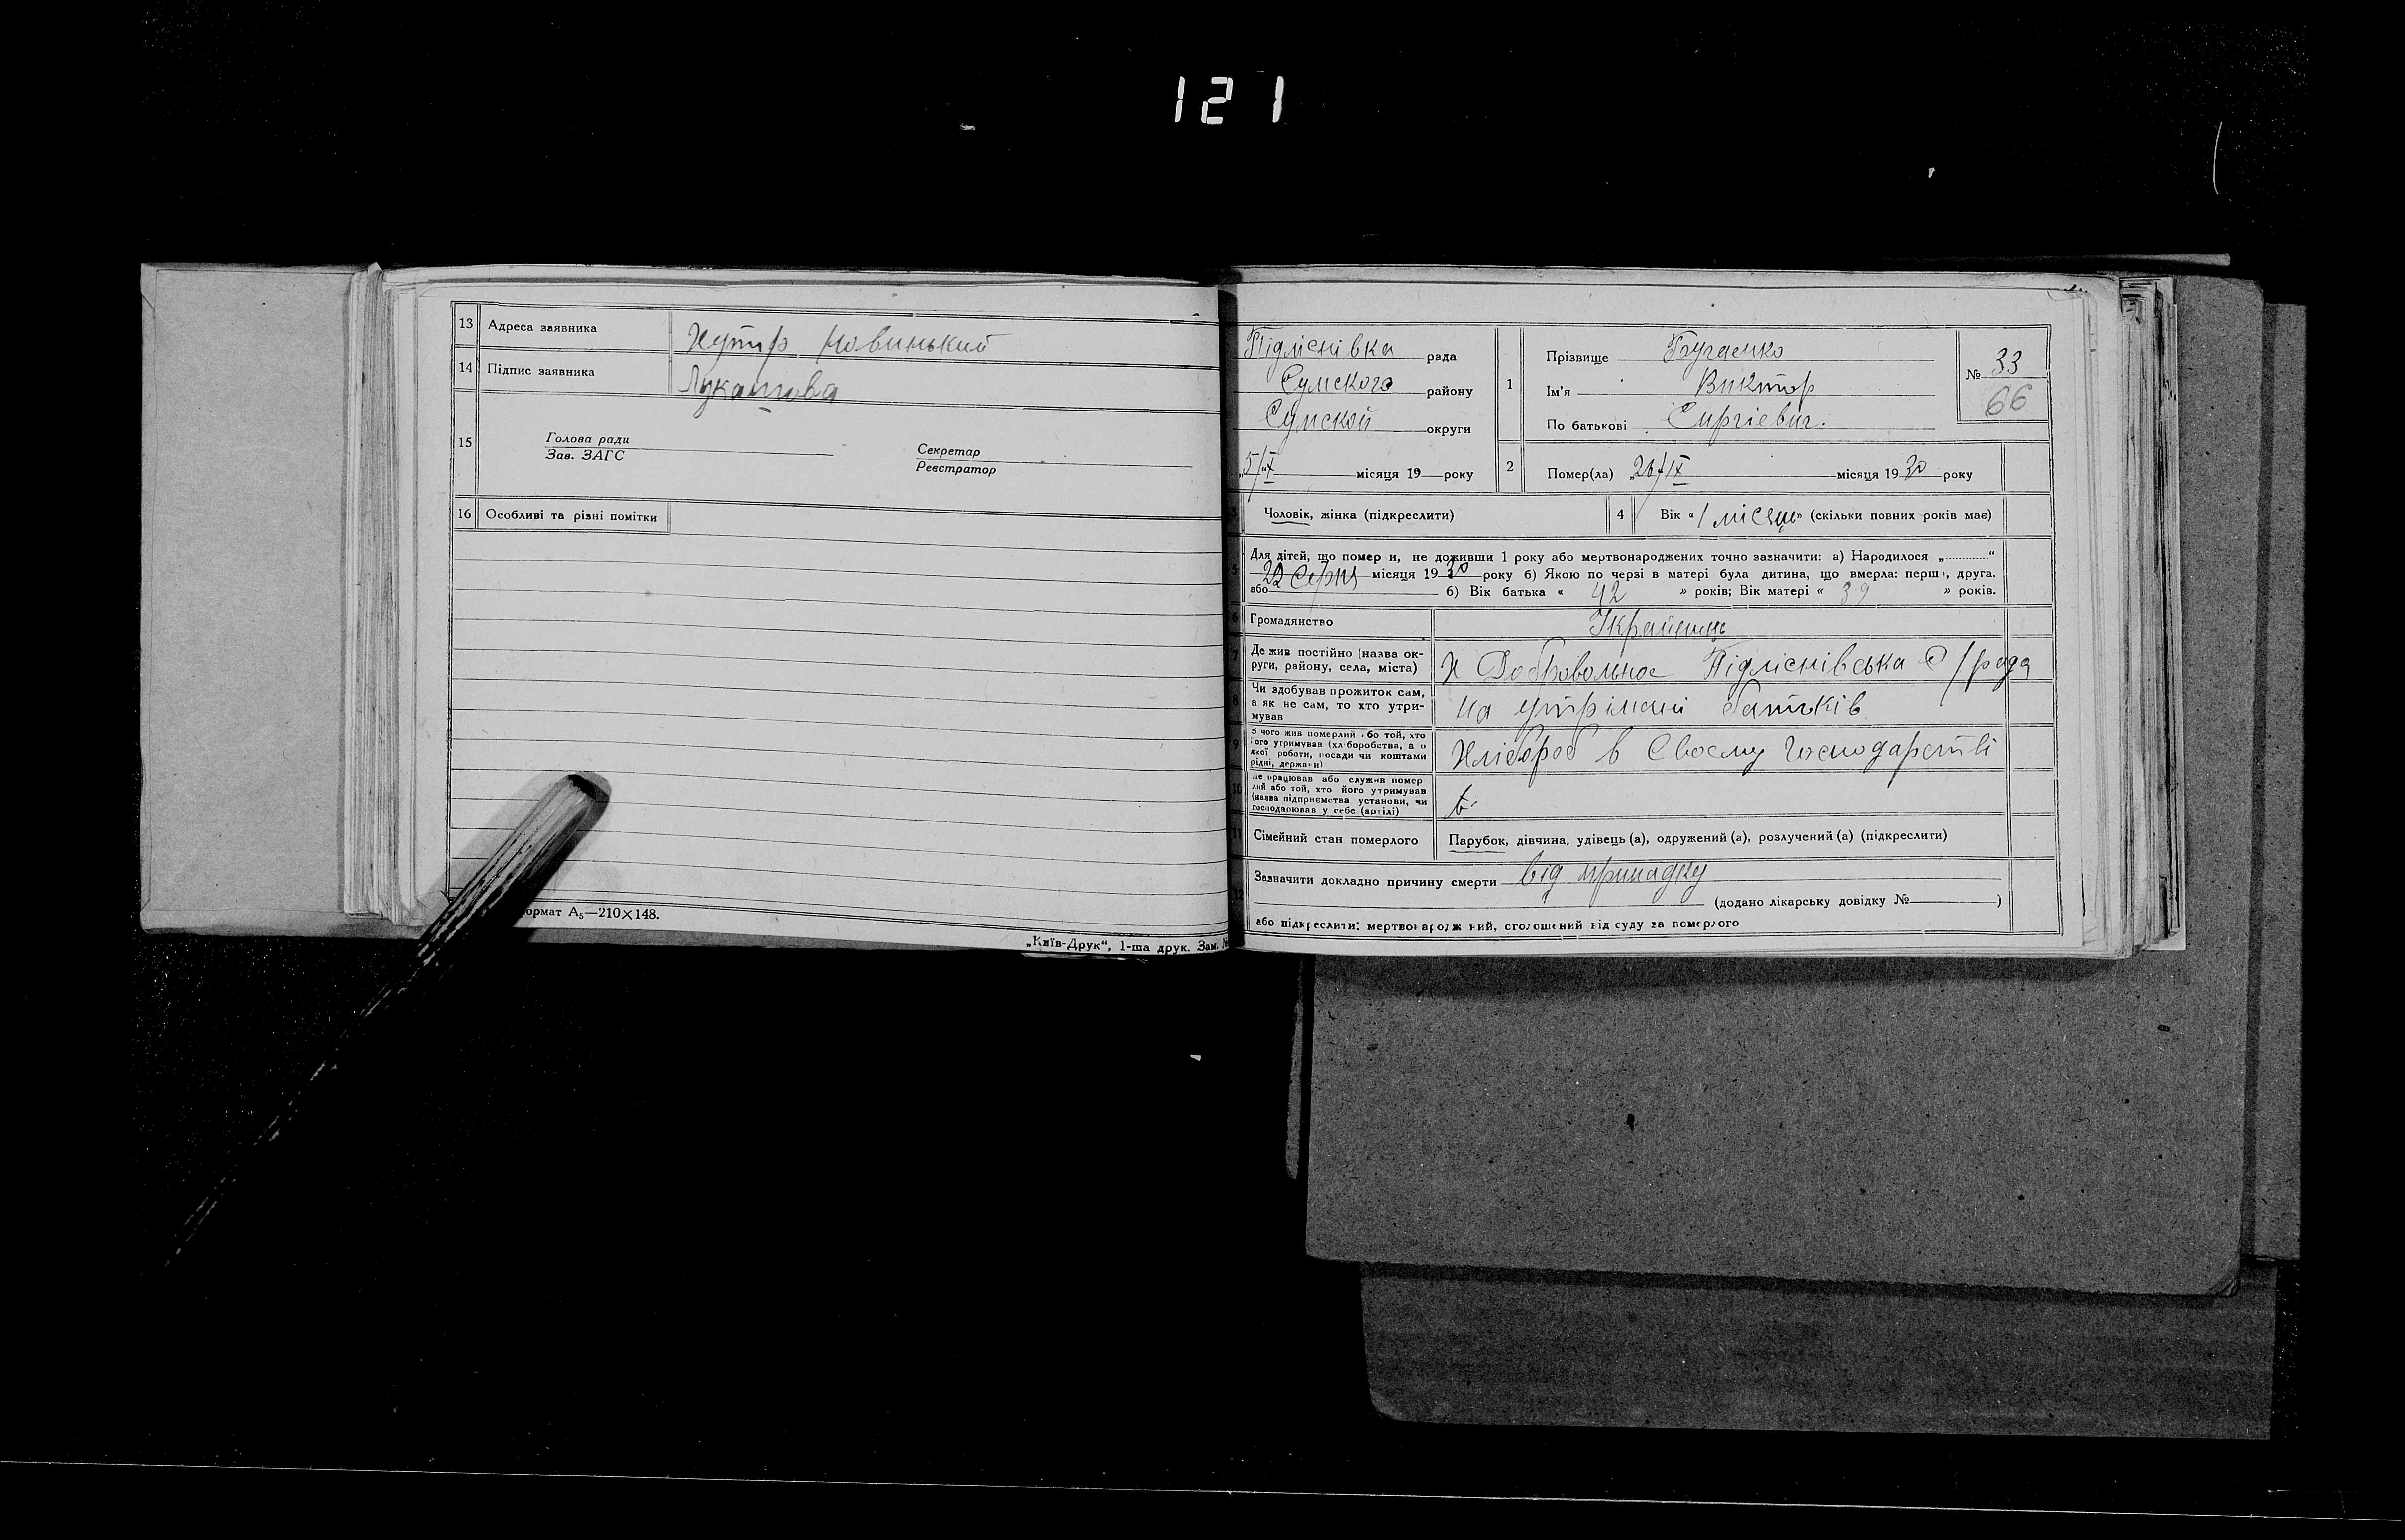 121
13 Адреса заявника Хутір Новинький
14 Підпис заявника Лукашова
15 Голова ради
Зав. ЗАГС
Секретар
Реєстратор
16 Особливі та різні помітки
формат А5—210×148.
„Київ-Друк“, 1-ша друк. Зам. №
Підліснівка рада
Сумского району
Сумской округи
„5/„X місяця 19 року
1 Прізвище
Ім'я Виктор
По батькові Сиргіевич.
№ 33
66
2 Помер(ла) „26/IX місяця 1930 року
3 Чоловік, жінка (підкреслити)
4 Вік «1 місяць» (скільки повних років має)
5 Для дітей, що помер и, не доживши 1 року або мертвонароджених точно зазначити: а) Народилося „............“
22 Серпня місяця 1930 року б) Якою по черзі в матері була дитина, що вмерла: перш , друга.
або б) Вік батька « 42 » років; Вік матері « 39 » років.
6 Громадянство Украйинць
7 Де жив постійно (назва округи, району, села, міста) Х Добровольное Підліснівська С/рада
8 Чи здобував прожиток сам,
а як не сам, то хто утримував на утрімані батьків
9 З чого жив померлий або той, хто
його утримував (хліборобства, а о
якої роботи, посади чи коштами
рідні, держави) Хлібороб в Своєму Господарстві
10 Де працював або служив помер
лий або той, хто його утримував
(назва підприємства установи, чи
господарював у себе (артілі)
11 Сімейний стан померлого Парубок, дівчина, удівець(а), одружений(а), розлучений(а) (підкреслити)
12 Зазначити докладно причину смерти від припадку
(додано лікарську довідку № )
або підкреслити: мертвонароджений, оголошений від суду за померлого